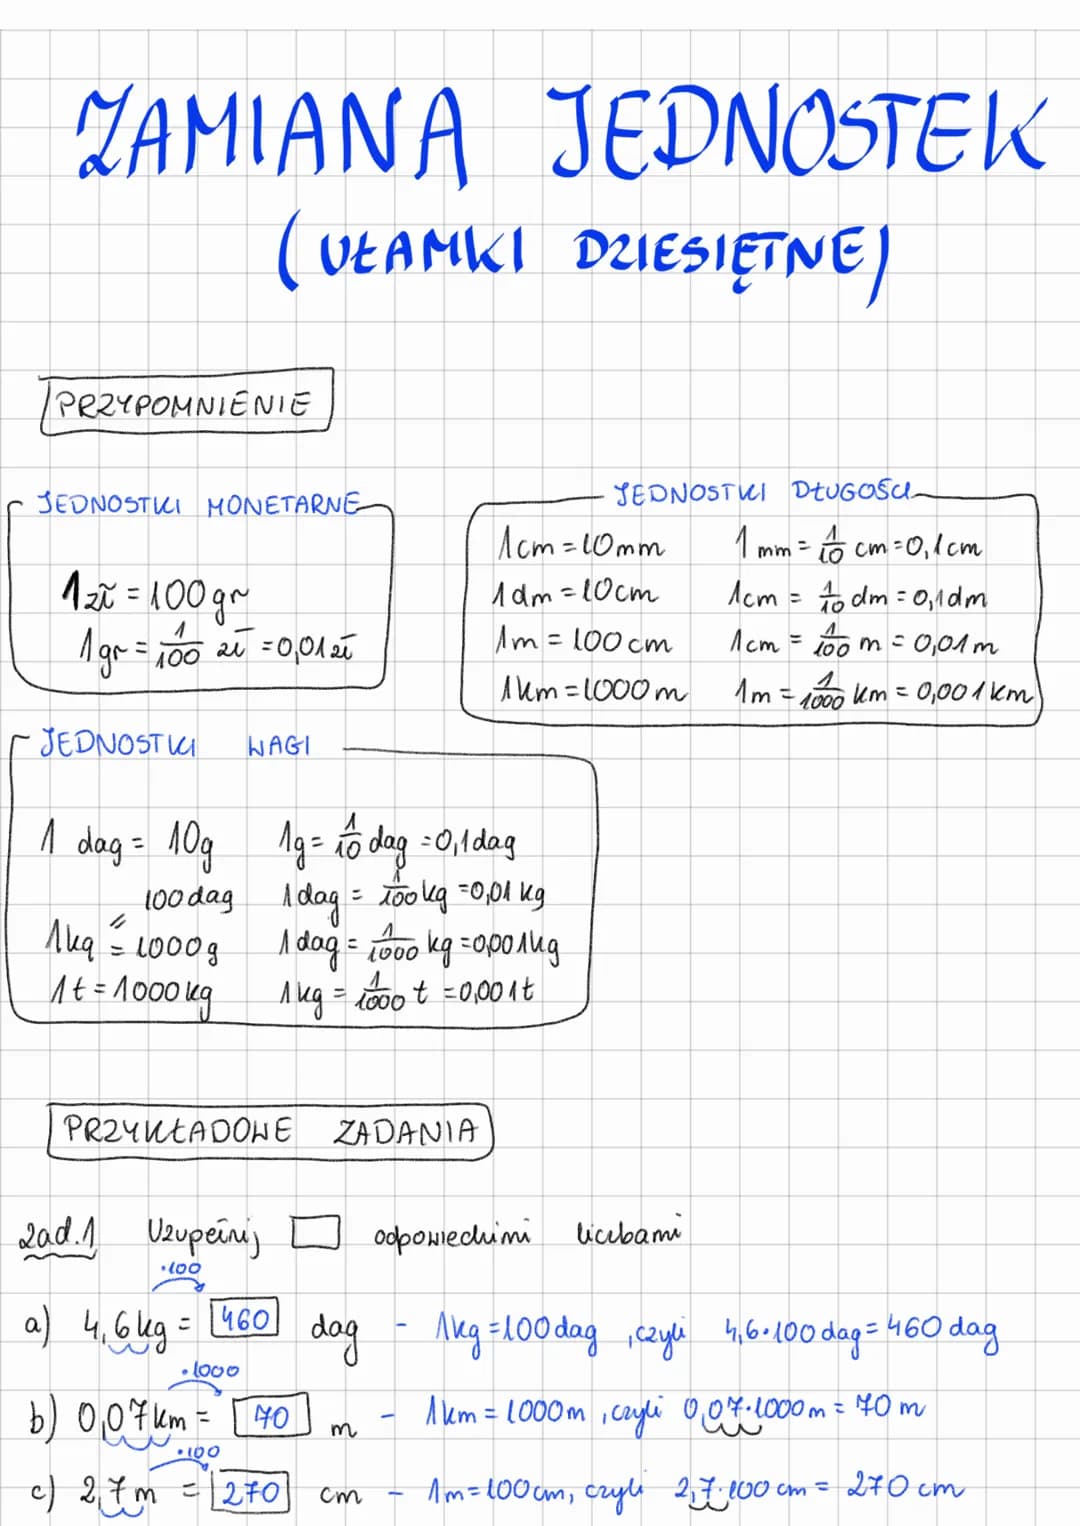 ZAMIANA JEDNOSTEK
(UŁAMKI DZIESIĘTNE)
PRZYPOMNIENIE
JEDNOSTKI MONETARNE
1 zł = 100 gr
1 gr = 1/100 zł = 0,01 zł
JEDNOSTKI DŁUGOŚCI
1 cm = 10 mm 1 mm = 1/10 cm = 0,1 cm
1 dm = 10 cm 1 cm = 1/10 dm = 0,1 dm
1 m = 100 cm 1 cm = 1/100 m = 0,01 m
1 km = 1000 m 1 m = 1/1000 km = 0,001 km
JEDNOSTKI WAGI
1 dag = 10 g 1 g = 1/10 dag = 0,1 dag
100 dag 1 dag = 1/100 kg = 0,01 kg
1 kg = 1000 g 1 dag = 1/1000 kg = 0,001 kg
1 t = 1000 kg 1 kg = 1/1000 t = 0,001 t
PRZYKŁADOWE ZADANIA
zad.1 Uzupełnij odpowiednimi liczbami
·100
a) 4,6 kg = 460 dag - 1 kg = 100 dag, czyli 4,6·100 dag = 460 dag
·1000
b) 0,07 km = 70 m - 1 km = 1000 m, czyli 0,07·1000 m = 70 m
·100
c) 2,7 m = 270 cm - 1 m = 100 cm, czyli 2,7·100 cm = 270 cm